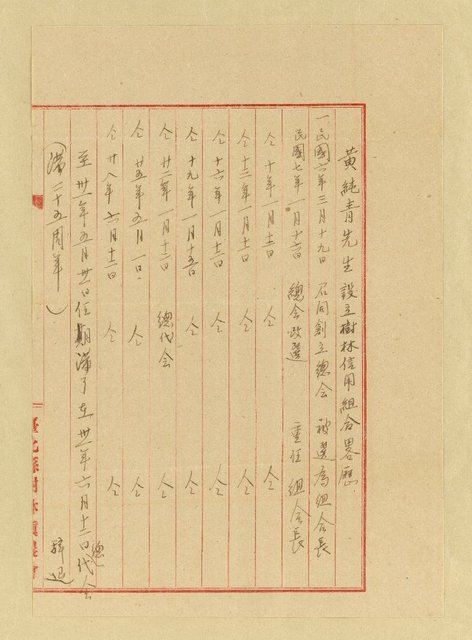 黃純青先生 設立樹林信用組合畧歷
一 民國六年三月十九日 召開創立總會 被選為組合長
民國七年一月十六日 總會改選 重任 組合長
仝 十年一月十三日 仝 仝
仝 十三年一月十二日 仝 仝
仝 十六年一月十二日 仝 仝
仝 十九年一月十五日 仝 仝
仝 廿二年一月十二日 總代会 仝
仝 廿五年五月一日 仝 仝
仝 廿八年六月十二日 仝 仝
至卅一年五月卅一日任期滿了 在卅一年六月十二日總代会
(滿二十五周年) 辭退
臺北縣樹林鎮農會